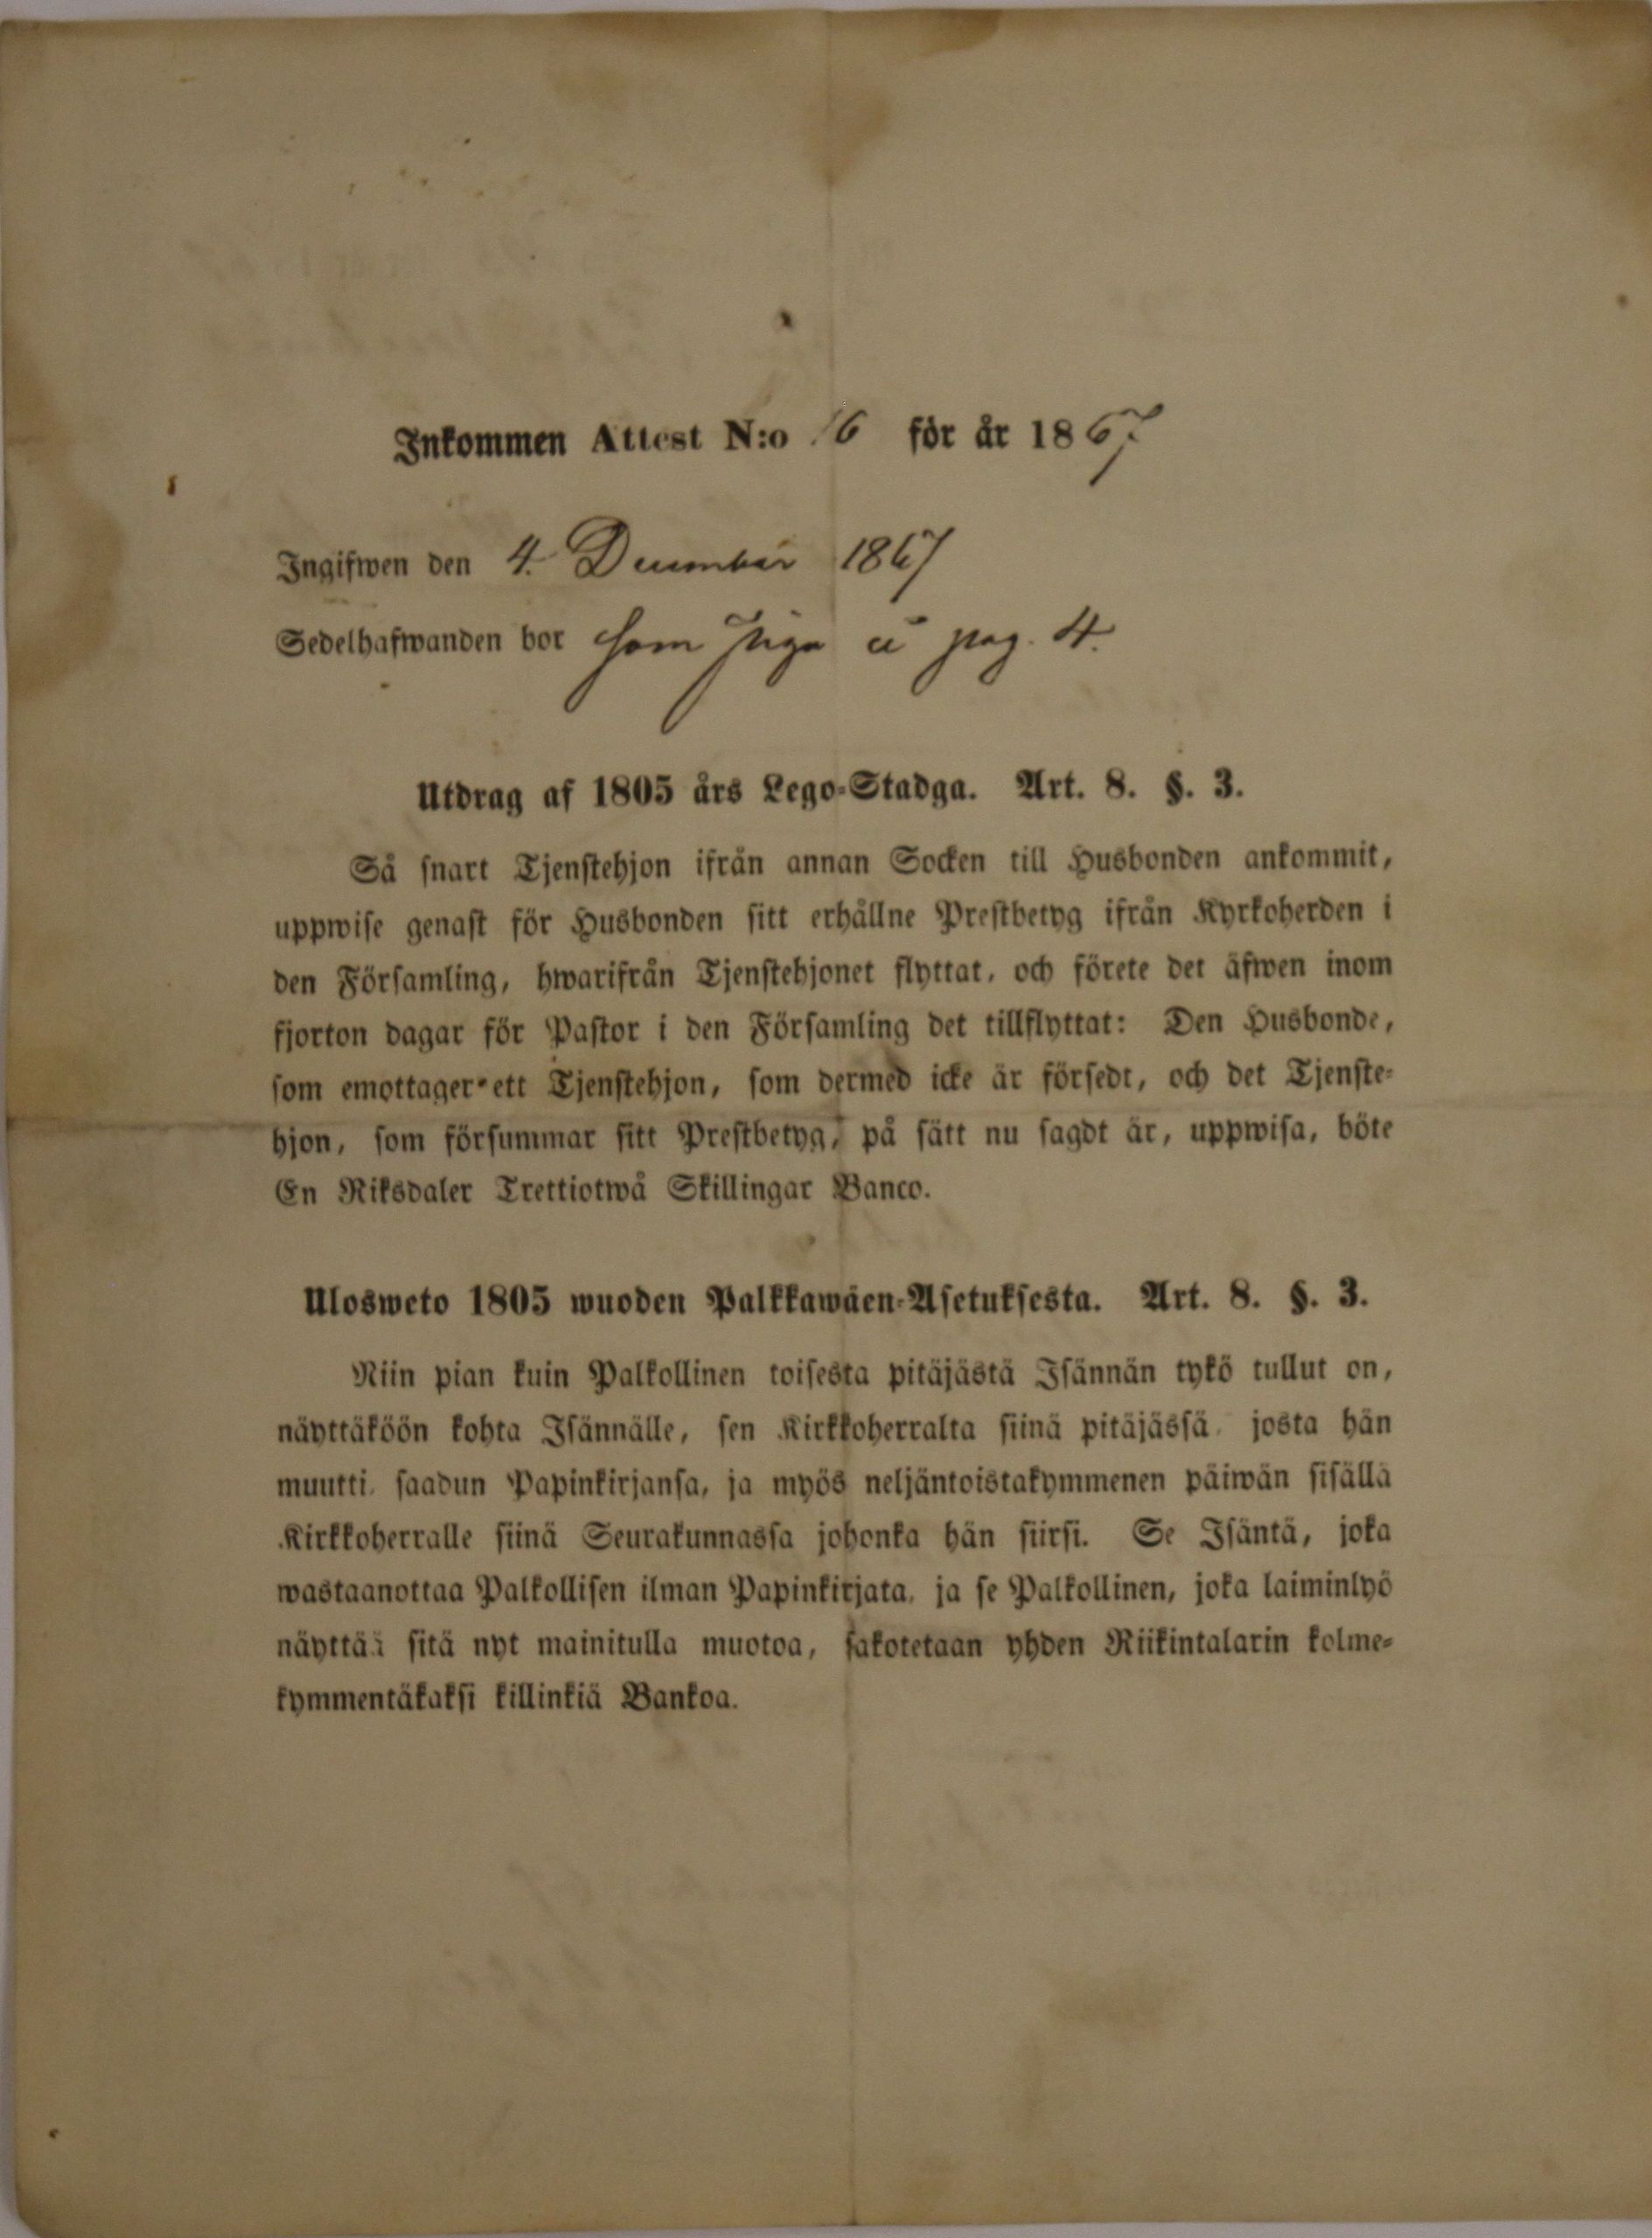 Inkommen Attest N:o 16 för år 1867
Ingifwen den 4. December 1867
Sedelhafwanden bor som piga å pag. 4.
Utdrag af 1805 års Lego-Stadga. Art. 8. §. 3.
Så snart Tjenstehjon ifrån annan Socken till Husbonden ankommit,
uppwise genast för Husbonden sitt erhållne Prestbetyg ifrån Kyrkoherden i
den Församling, hwarifrån Tjenstehjonet flyttat, och förete det äfwen inom
fjorton dagar för Pastor i den Församling det tillflyttat: Den Husbonde,
som emottager ett Tjenstehjon, som dermed icke är försedt, och det Tjenste-
hjon, som försummar sitt Prestbetyg, på sätt nu sagdt är, uppwisa, böte
En Riksdaler Trettiotwå Skillingar Banco.
Ulosweto 1805 wuoden Palkkawäen-Asetuksesta. Art. 8. §. 3.
Niin pian kuin Palkollinen toisesta pitäjästä Isännän tykö tullut on,
näyttäköön kohta Isännälle, sen Kirkkoherralta siinä pitäjässä, josta hän
muutti, saadun Papinkirjansa, ja myös neljäntoistakymmenen päiwän sisällä
Kirkkoherralle siinä Seurakunnassa johonka hän siirsi. Se Isäntä, joka
wastaanottaa Palkollisen ilman Papinkirjata, ja se Palkollinen, joka laiminlyö
näyttää sitä nyt mainitulla muotoa, sakotetaan yhden Riikintalarin kolme-
kymmentäkaksi killinkiä Bankoa.